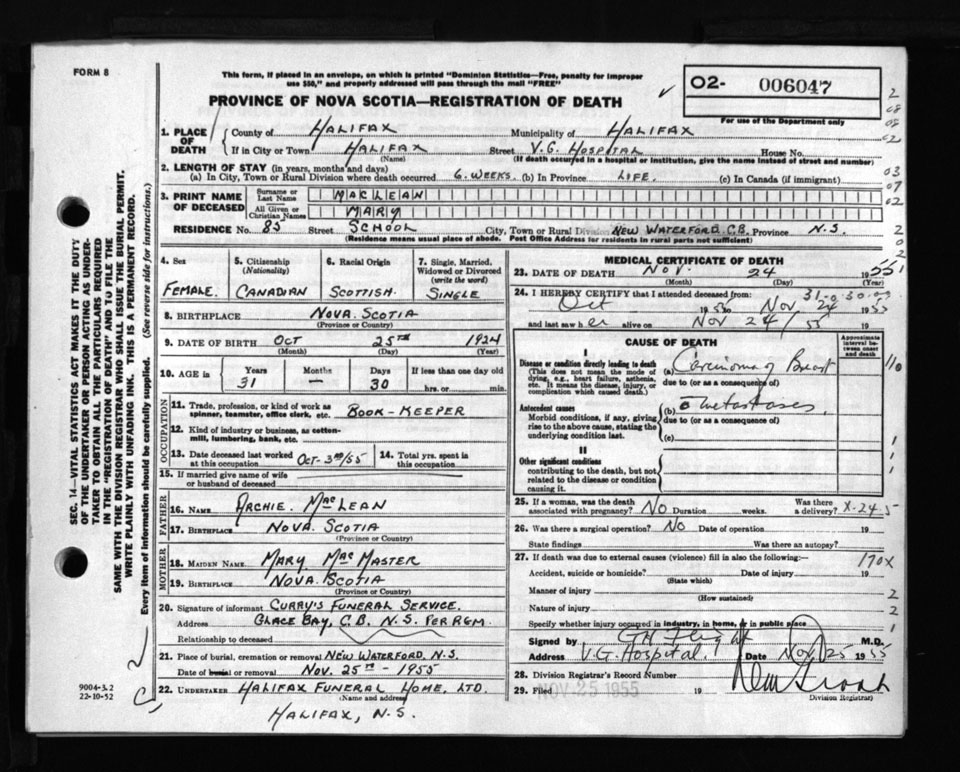 FORM 8
This form, if placed in an envelope, on which is printed "Dominion Statistics—Free, penalty for improper
use $50," and properly addressed will pass through the mail "FREE"
PROVINCE OF NOVA SCOTIA—REGISTRATION OF DEATH
O2- 006047
For use of the Department only
1. PLACE OF DEATH
County of HALIFAX Municipality of HALIFAX
If in City or Town HALIFAX Street V.G. HOSPITAL House No.
(Name) (If death occurred in a hospital or institution, give the name instead of street and number)
2. LENGTH OF STAY (in years, months and days)
(a) In City, Town or Rural Division where death occurred 6. WEEKS. (b) In Province LIFE. (c) In Canada (if immigrant)
3. PRINT NAME OF DECEASED
Surname or Last Name MACLEAN
All Given or Christian Names MARY
RESIDENCE No. 85 Street SCHOOL City, Town or Rural Division NEW WATERFORD C.B. Province N.S.
(Residence means usual place of abode. Post Office Address for residents in rural parts not sufficient)
4. Sex FEMALE.
5. Citizenship (Nationality) CANADIAN
6. Racial Origin SCOTTISH.
7. Single, Married, Widowed or Divorced (write the word) SINGLE
8. BIRTHPLACE NOVA. SCOTIA
(Province or Country)
9. DATE OF BIRTH OCT 25TH 1924
(Month) (Day) (Year)
10. AGE IN Years 31 Months — Days 30 If less than one day old
hrs. or min.
OCCUPATION
11. Trade, profession, or kind of work as
spinner, teamster, office clerk, etc. BOOK-KEEPER
12. Kind of industry or business, as cotton-
mill, lumbering, bank, etc.
13. Date deceased last worked
at this occupation OCT-3RD/55
14. Total yrs. spent in
this occupation
15. If married give name of wife
or husband of deceased
FATHER
16. NAME ARCHIE. MACLEAN
17. BIRTHPLACE NOVA. SCOTIA
(Province or Country)
MOTHER
18. MAIDEN NAME MARY MACMASTER
19. BIRTHPLACE NOVA. SCOTIA
(Province or Country)
20. Signature of informant CURRY'S FUNERAL SERVICE.
Address GLACE BAY, C.B. N.S. PER RGM.
Relationship to deceased
21. Place of burial, cremation or removal NEW WATERFORD. N.S.
Date of burial or removal NOV. 25TH - 1955
22. UNDERTAKER HALIFAX FUNERAL HOME. LTD.
(Name and address)
HALIFAX, N.S.
MEDICAL CERTIFICATE OF DEATH
23. DATE OF DEATH NOV. 24 1955
(Month) (Day) (Year)
24. I HEREBY CERTIFY that I attended deceased from
Oct 1955 to Nov 24 1955
and last saw her alive on Nov 24/55 19
CAUSE OF DEATH
Approximate interval between onset and death
I
Disease or condition directly leading to death
(This does not mean the mode of
dying, e.g., heart failure, asthenia,
etc. It means the disease, injury, or
complication which caused death.)
(a) Carcinoma of Breast
due to (or as a consequence of)
Antecedent causes
Morbid conditions, if any, giving
rise to the above cause, stating the
underlying condition last.
(b) c̄ metastases.
due to (or as a consequence of)
(c)
II
Other significant conditions
contributing to the death, but not
related to the disease or condition
causing it.
25. If a woman, was the death
associated with pregnancy? NO Duration weeks. Was there
a delivery?
26. Was there a surgical operation? NO Date of operation 19
State findings Was there an autopsy?
27. If death was due to external causes (violence) fill in also the following:—
170X
Accident, suicide or homicide? Date of injury 19
(State which)
Manner of injury
(How sustained)
Nature of injury
Specify whether injury occurred in industry, in home, or in public place
Signed by M.D.
Address V.G. Hospital. Date Nov 25 1955
28. Division Registrar's Record Number
29. Filed NOV 25 1955 19
(Division Registrar)
SEC. 14—VITAL STATISTICS ACT MAKES IT THE DUTY
OF THE UNDERTAKER OR PERSON ACTING AS UNDER-
TAKER TO OBTAIN ALL THE PARTICULARS REQUIRED
IN THE "REGISTRATION OF DEATH" AND TO FILE THE
SAME WITH THE DIVISION REGISTRAR WHO SHALL ISSUE THE BURIAL PERMIT.
WRITE PLAINLY WITH UNFADING INK. THIS IS A PERMANENT RECORD.
Every item of information should be carefully supplied. (See reverse side for instructions.)
9004-3.2
22-10-52